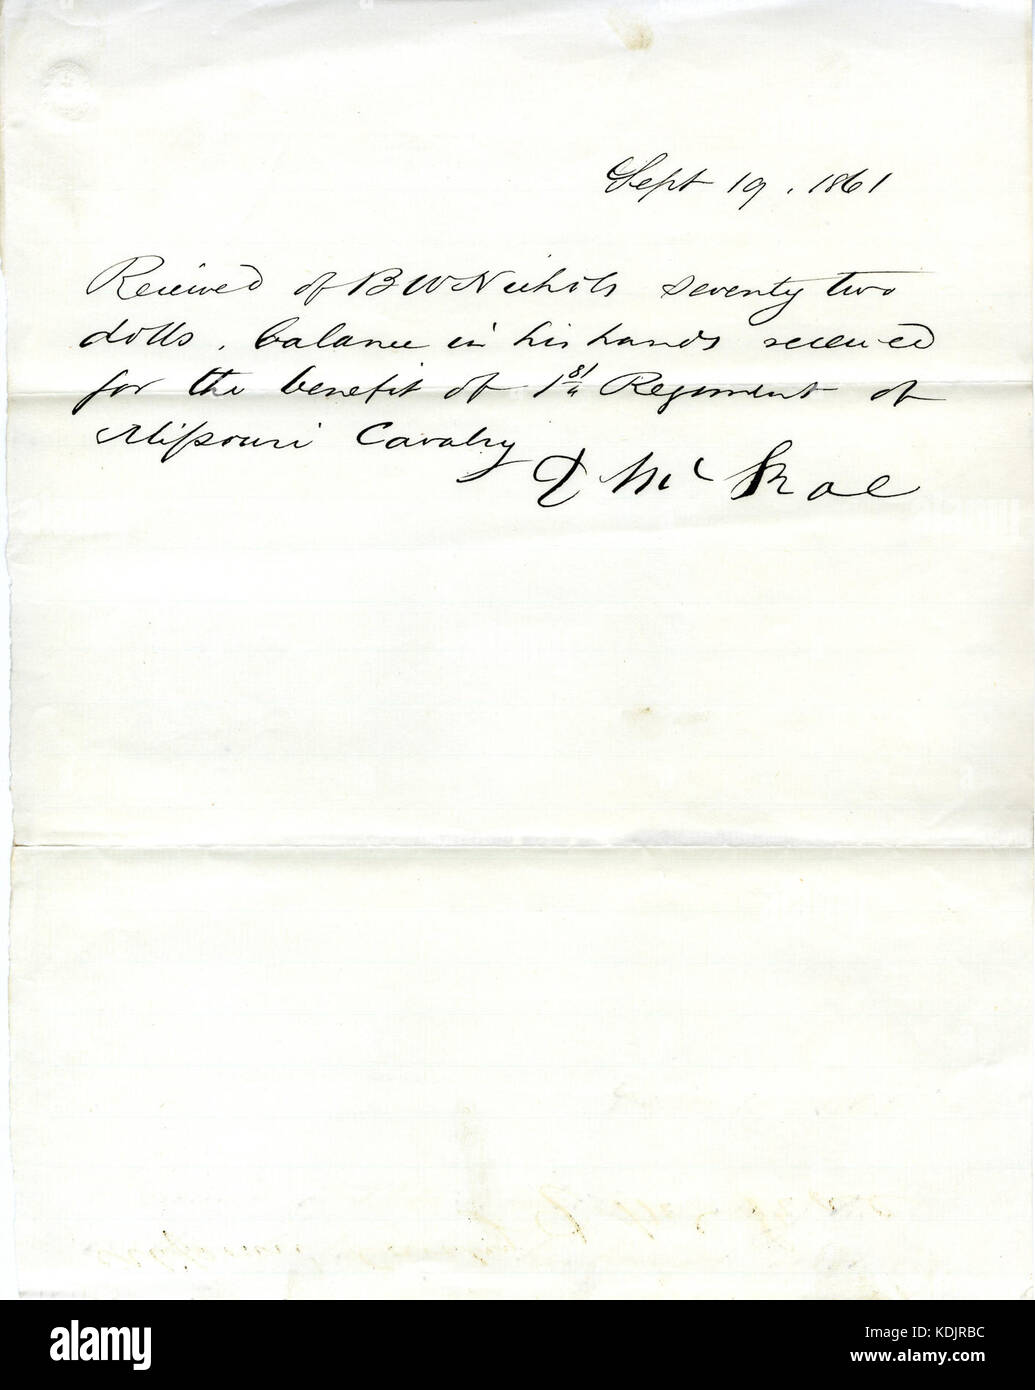 Sept 19. 1861
Received of B W Nichols seventy two
dolls. balance in his hands received
for the benefit of 1st Regiment of
Missouri Cavalry
Mc
alamy stock photo
a
alamy
Image ID: KDJRBC
www.alamy.com